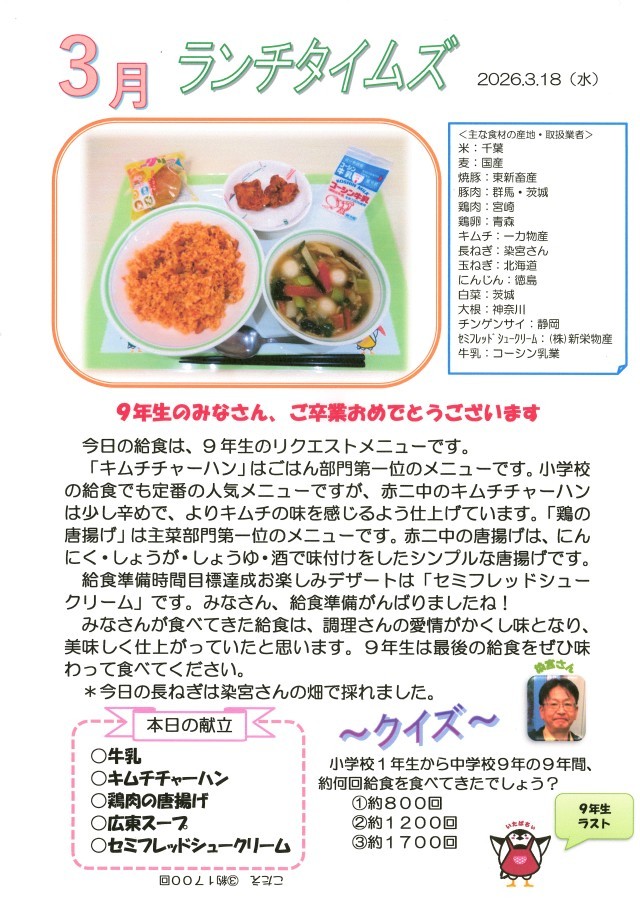 3月 ランチタイムズ 2026.3.18（水）
＜主な食材の産地・取扱業者＞
米：千葉
麦：国産
焼豚：東新畜産
豚肉：群馬・茨城
鶏肉：宮崎
鶏卵：青森
キムチ：一力物産
長ねぎ：染宮さん
玉ねぎ：北海道
にんじん：徳島
白菜：茨城
大根：神奈川
チンゲンサイ：静岡
ｾﾐﾌﾚｯﾄﾞｼｭｰｸﾘｰﾑ：(株)新栄物産
牛乳：コーシン乳業
コーシン牛乳
９年生のみなさん、ご卒業おめでとうございます
今日の給食は、９年生のリクエストメニューです。
「キムチチャーハン」はごはん部門第一位のメニューです。小学校
の給食でも定番の人気メニューですが、赤二中のキムチチャーハン
は少し辛めで、よりキムチの味を感じるよう仕上げています。「鶏の
唐揚げ」は主菜部門第一位のメニューです。赤二中の唐揚げは、にん
にく・しょうが・しょうゆ・酒で味付けをしたシンプルな唐揚げです。
給食準備時間目標達成お楽しみデザートは「セミフレッドシュー
クリーム」です。みなさん、給食準備がんばりましたね！
みなさんが食べてきた給食は、調理さんの愛情がかくし味となり、
美味しく仕上がっていたと思います。９年生は最後の給食をぜひ味
わって食べてください。
＊今日の長ねぎは染宮さんの畑で採れました。
染宮さん
本日の献立
○牛乳
○キムチチャーハン
○鶏肉の唐揚げ
○広東スープ
○セミフレッドシュークリーム
～クイズ～
小学校１年生から中学校９年の９年間、
約何回給食を食べてきたでしょう？
①約８００回
②約１２００回
③約１７００回
９年生
ラスト
いたばるい
こたえ ③約１７００回